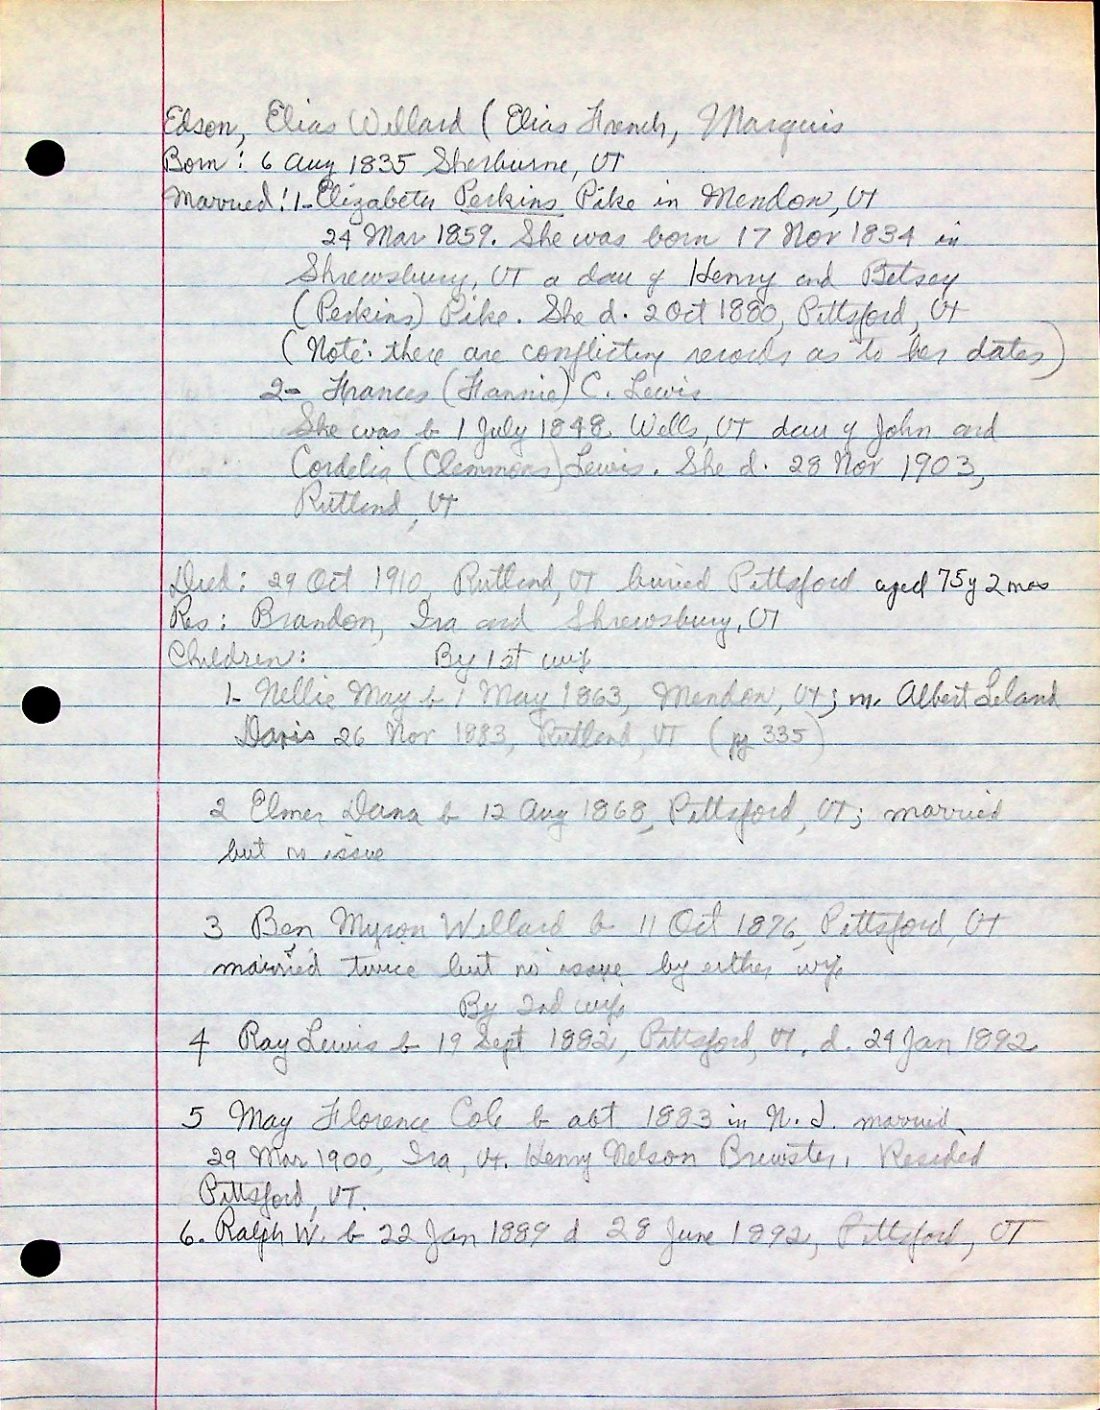 Edson, Elias Willard (Elias French, Marquis
Born: 6 Aug 1835 Sherburne, VT
Married: 1- Elizabeth Perkins Pike in Mendon, VT
24 Mar 1859. She was born 17 Nov 1834 in
Shrewsbury, VT a dau of Henry and Betsey
(Perkins) Pike. She d. 2 Oct 1880, Pittsford, VT
(Note: there are conflicting records as to her dates)
2- Frances (Fannie) C. Lewis
She was b 1 July 1848, Wells, VT dau of John and
Cordelia (Clemmons) Lewis. She d. 28 Nov 1903,
Rutland, VT
Died: 29 Oct 1910, Rutland, VT buried Pittsford aged 75y 2 mos
Res: Brandon, Ira and Shrewsbury, VT
Children: By 1st wife
1- Nellie May b 1 May 1863, Mendon, VT; m. Albert Leland
Davis 26 Nov 1883, Rutland, VT (pg 335)
2 Elmer Dana b 12 Aug 1868, Pittsford, VT; married
but no issue
3 Ben Myron Willard b 11 Oct 1876, Pittsford, VT
married twice but no issue by either wife
By 2nd wife
4 Ray Lewis b 19 Sept 1882, Pittsford, VT, d. 24 Jan 1892
5 May Florence Cole b abt 1883 in N. J. married
29 Mar 1900, Ira, Vt. Henry Nelson Brewster. Resided
Pittsford, VT.
6. Ralph W. b 22 Jan 1889 d 28 June 1892, Pittsford, VT